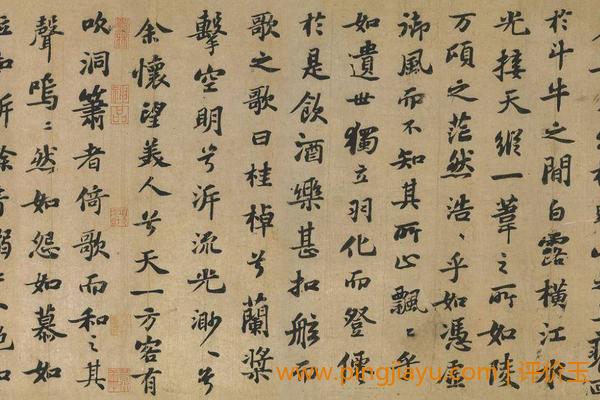 於斗牛之間白露橫江水
光接天縱一葦之所如陵
万頃之茫然浩〻乎如憑虛
御風而不知其所止飄〻乎
如遺世獨立羽化而登僊
於是飲酒樂甚扣舷而
歌之歌曰桂棹兮蘭槳
擊空明兮泝流光渺〻兮
余懷望美人兮天一方客有
吹洞簫者倚歌而和之其
聲嗚〻然如怨如慕如
如訴餘音
www.pingjiayu.com | 评价玉